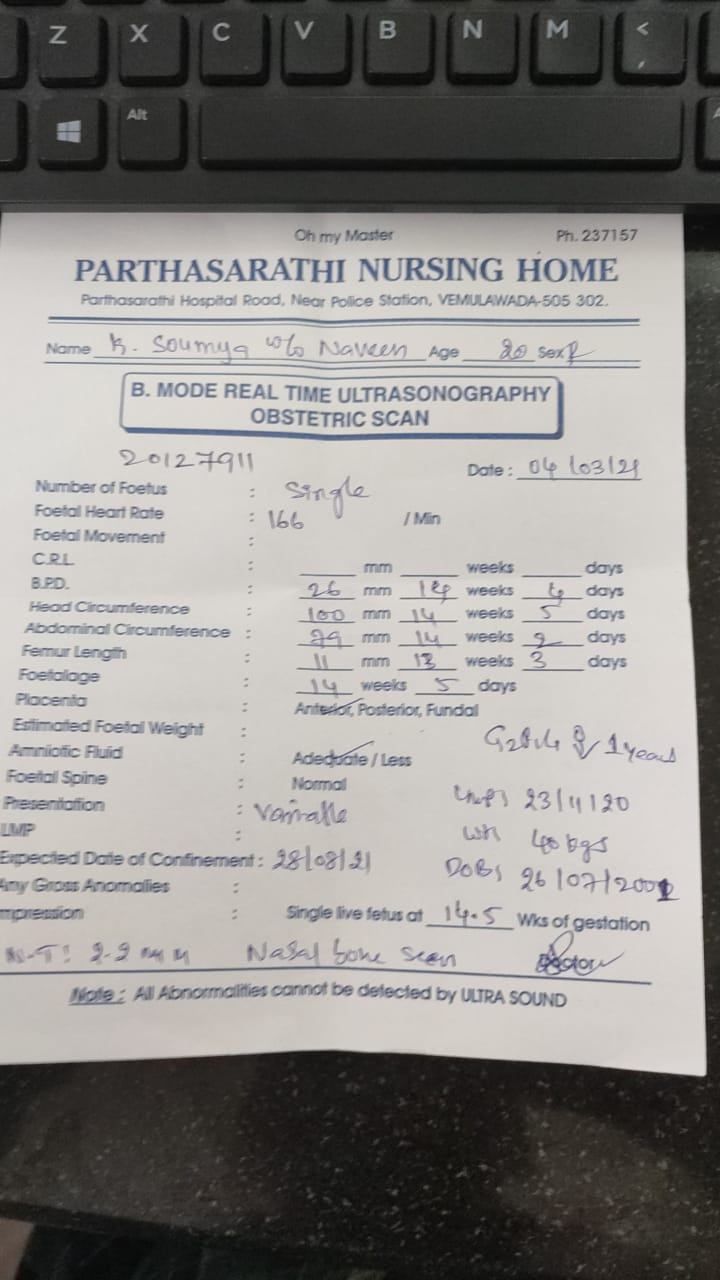 Z X C V B N M <
,
Alt
Oh my Master Ph. 237157
PARTHASARATHI NURSING HOME
Parthasarathi Hospital Road, Near Police Station, VEMULAWADA-505 302.
Name K. Soumya w/o Naveen Age 20 Sex F
B. MODE REAL TIME ULTRASONOGRAPHY
OBSTETRIC SCAN
20127911
Date : 04/03/21
Number of Foetus : Single
Foetal Heart Rate : 166 / Min
Foetal Movement :
C.R.L : mm weeks days
B.P.D. : 26 mm 14 weeks 4 days
Head Circumference : 100 mm 14 weeks 5 days
Abdominal Circumference : 79 mm 14 weeks 2 days
Femur Length : 11 mm 13 weeks 3 days
Foetalage : 14 weeks 5 days
Placenta : Anterior, Posterior, Fundal
Estimated Foetal Weight :
1 years
Amniotic Fluid : Adequate / Less
Foetal Spine : Normal
Presentation : Variable
LMP : 23/11/20
LMP :
Wt 40 kgs
Expected Date of Confinement : 28/08/21
DOB: 26/07/2001
Any Gross Anomalies :
mpression : Single live fetus at 14.5 Wks of gestation
N.T: 2.2 mm Nasal bone seen Doctor
Note : All Abnormalities cannot be detected by ULTRA SOUND